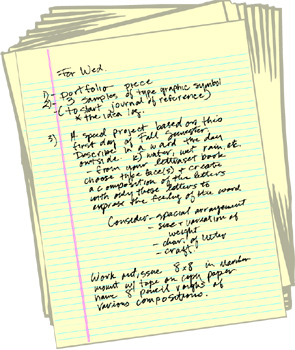 For Wed.
1) - portfolio piece
2) - 3 samples of type graphic symbol
- (to start journal of reference)
& the idea log.
3) A speed project based on this
first day of Fall Semester.
Describe in a word the day
outside. water, wet rain, etc.
- From your letraset book
choose type face(s) & create
a composition of the letters
with only those letters to
express the feeling of the word
Consider - spacial arrangement
- size & variation of
weight
- char. of letter
- craft!
Work size 8x8 in
mount w/ tape on copy paper
have 8 pencil roughs of
various compositions.